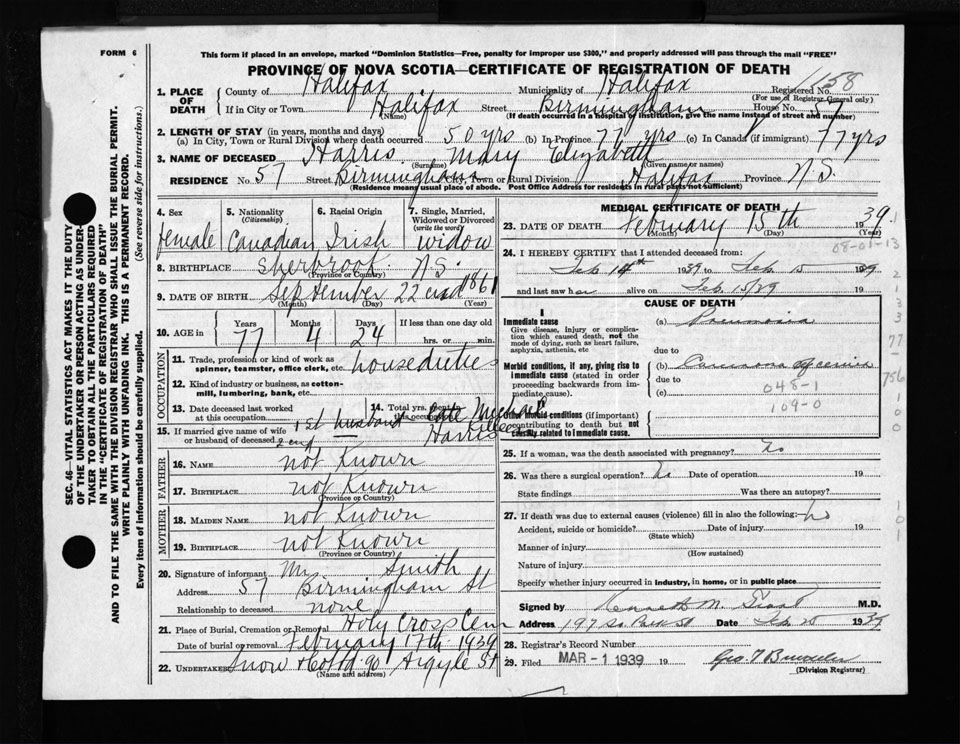 FORM 6
This form if placed in an envelope, marked "Dominion Statistics—Free, penalty for improper use $300," and properly addressed will pass through the mail "FREE"
PROVINCE OF NOVA SCOTIA—CERTIFICATE OF REGISTRATION OF DEATH
SEC. 46—VITAL STATISTICS ACT MAKES IT THE DUTY
OF THE UNDERTAKER OR PERSON ACTING AS UNDER-
TAKER TO OBTAIN ALL THE PARTICULARS REQUIRED
IN THE "CERTIFICATE OF REGISTRATION OF DEATH"
AND TO FILE THE SAME WITH THE DIVISION REGISTRAR WHO SHALL ISSUE THE BURIAL PERMIT.
WRITE PLAINLY WITH UNFADING INK. THIS IS A PERMANENT RECORD.
Every item of information should be carefully supplied. (See reverse side for instructions.)
1. PLACE OF DEATH
County of Halifax Municipality of Halifax Registered No. 1158
(For use of Registrar General only)
If in City or Town Halifax Street Birmingham House No. 57
(Name) (If death occurred in a hospital or institution, give the name instead of street and number)
2. LENGTH OF STAY (in years, months and days)
(a) In City, Town or Rural Division where death occurred 50 yrs (b) In Province 77 yrs (c) In Canada (if immigrant) 77 yrs
3. NAME OF DECEASED Harris Mary Elizabeth
(Surname) (Given name or names)
RESIDENCE No. 57 Street Birmingham City, Town or Rural Division Halifax Province N.S.
(Residence means usual place of abode. Post Office Address for residents in rural parts not sufficient)
4. Sex female
5. Nationality (Citizenship) Canadian
6. Racial Origin Irish
7. Single, Married, Widowed or Divorced (write the word) widow
8. BIRTHPLACE Sherbroot N.S.
(Province or Country)
9. DATE OF BIRTH September 22end 1861
(Month) (Day)
10. AGE in Years 77 Months 4 Days 24 If less than one day old hrs. or min.
OCCUPATION
11. Trade, profession or kind of work as spinner, teamster, office clerk, etc. houseduties
12. Kind of industry or business, as cotton-mill, lumbering, bank, etc.
13. Date deceased last worked at this occupation
14. Total yrs. spent in this occupation
15. If married give name of wife or husband of deceased 1st husband Michael Killeen
2end Harris
FATHER
16. NAME not Known
17. BIRTHPLACE not Known
(Province or Country)
MOTHER
18. MAIDEN NAME not Known
19. BIRTHPLACE not Known
(Province or Country)
20. Signature of informant Mr Smith
Address 57 Birmingham St
Relationship to deceased none
21. Place of Burial, Cremation or Removal Holy Cross Cem
Date of burial or removal February 17th 1939
22. UNDERTAKER Snow & Co Ltd 90 Argyle St
(Name and address)
MEDICAL CERTIFICATE OF DEATH
23. DATE OF DEATH February 15th 1939
(Month) (Day) (Year)
24. I HEREBY CERTIFY that I attended deceased from:
Feb 14th 1939 to Feb 15 1939
and last saw her alive on Feb 15/39
CAUSE OF DEATH
I
Immediate cause
Give disease, injury or complication which caused death, not the mode of dying, such as heart failure, asphyxia, asthenia, etc
(a) Pneumonia
due to
Morbid conditions, if any, giving rise to immediate cause (stated in order proceeding backwards from immediate cause).
(b)
due to
(c) 048-1
109-0
II
Other morbid conditions (if important) contributing to death but not causally related to immediate cause.
25. If a woman, was the death associated with pregnancy? No
26. Was there a surgical operation? No Date of operation 19
State findings Was there an autopsy?
27. If death was due to external causes (violence) fill in also the following:— no
Accident, suicide or homicide? Date of injury 19
(State which)
Manner of injury
(How sustained)
Nature of injury
Specify whether injury occurred in industry, in home, or in public place
Signed by Kenneth M. Grant M.D.
Address 197 So Park St Date Feb. 25 1939
28. Registrar's Record Number
29. Filed MAR -1 1939 19
(Division Registrar)